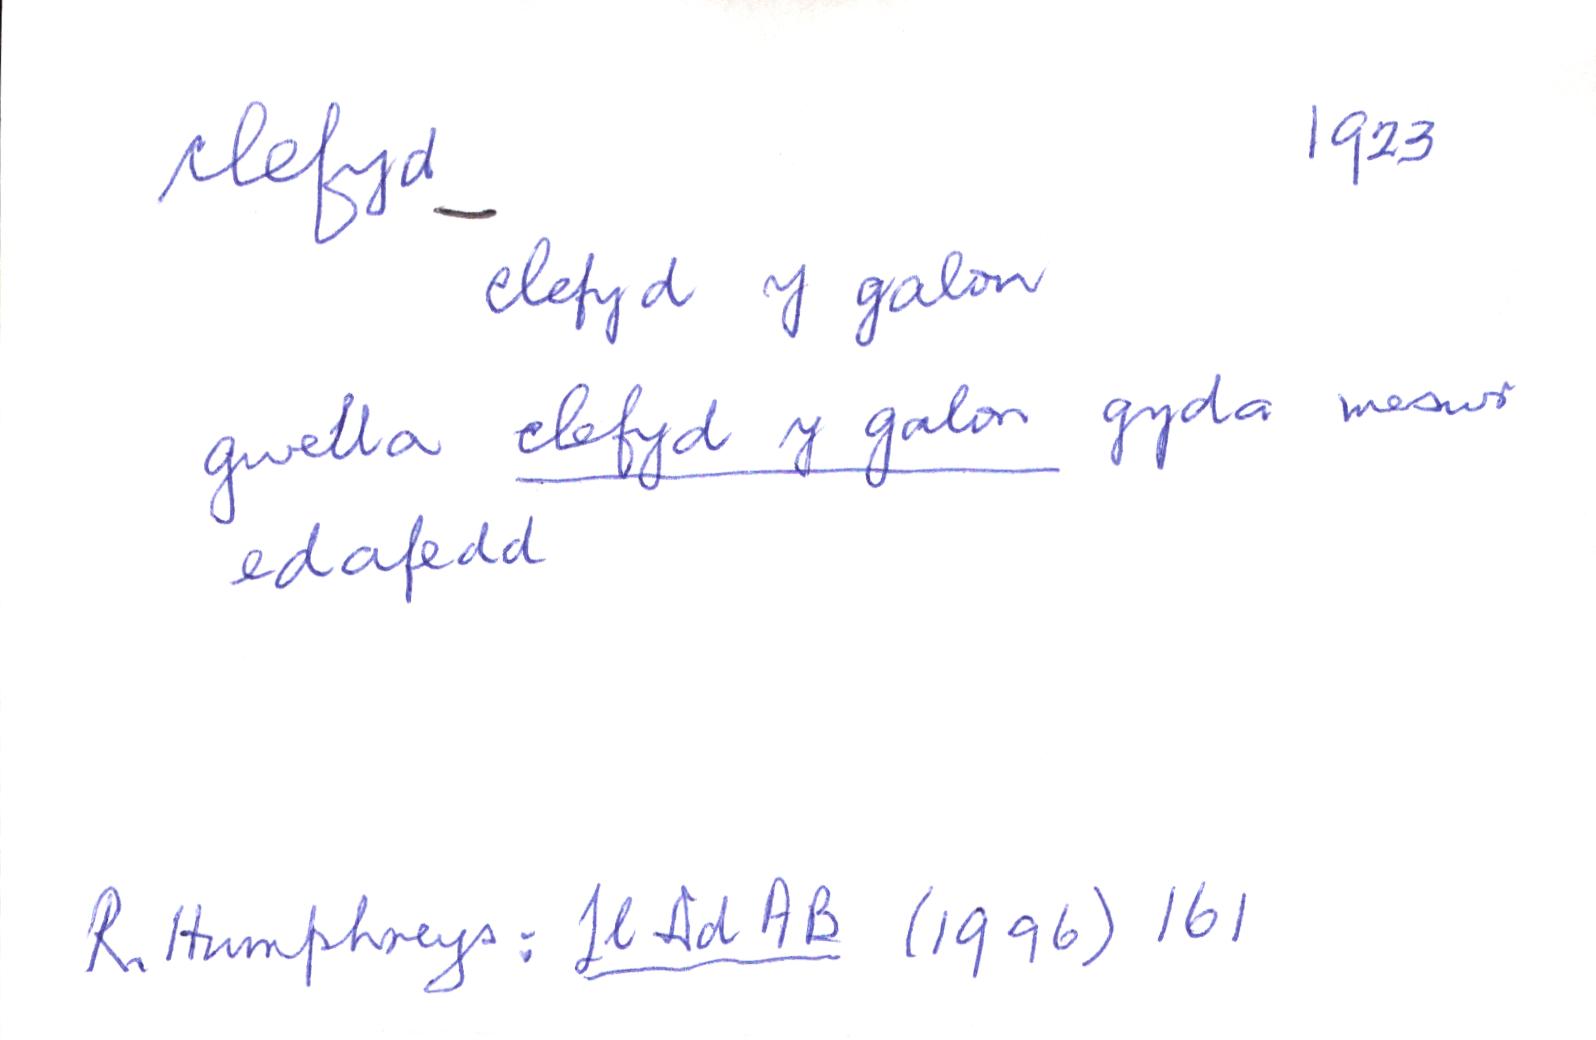 clefyd_ 1923
clefyd y galon
gwella clefyd y galon gyda mesur
edafedd
R. Humphreys: (1996) 161